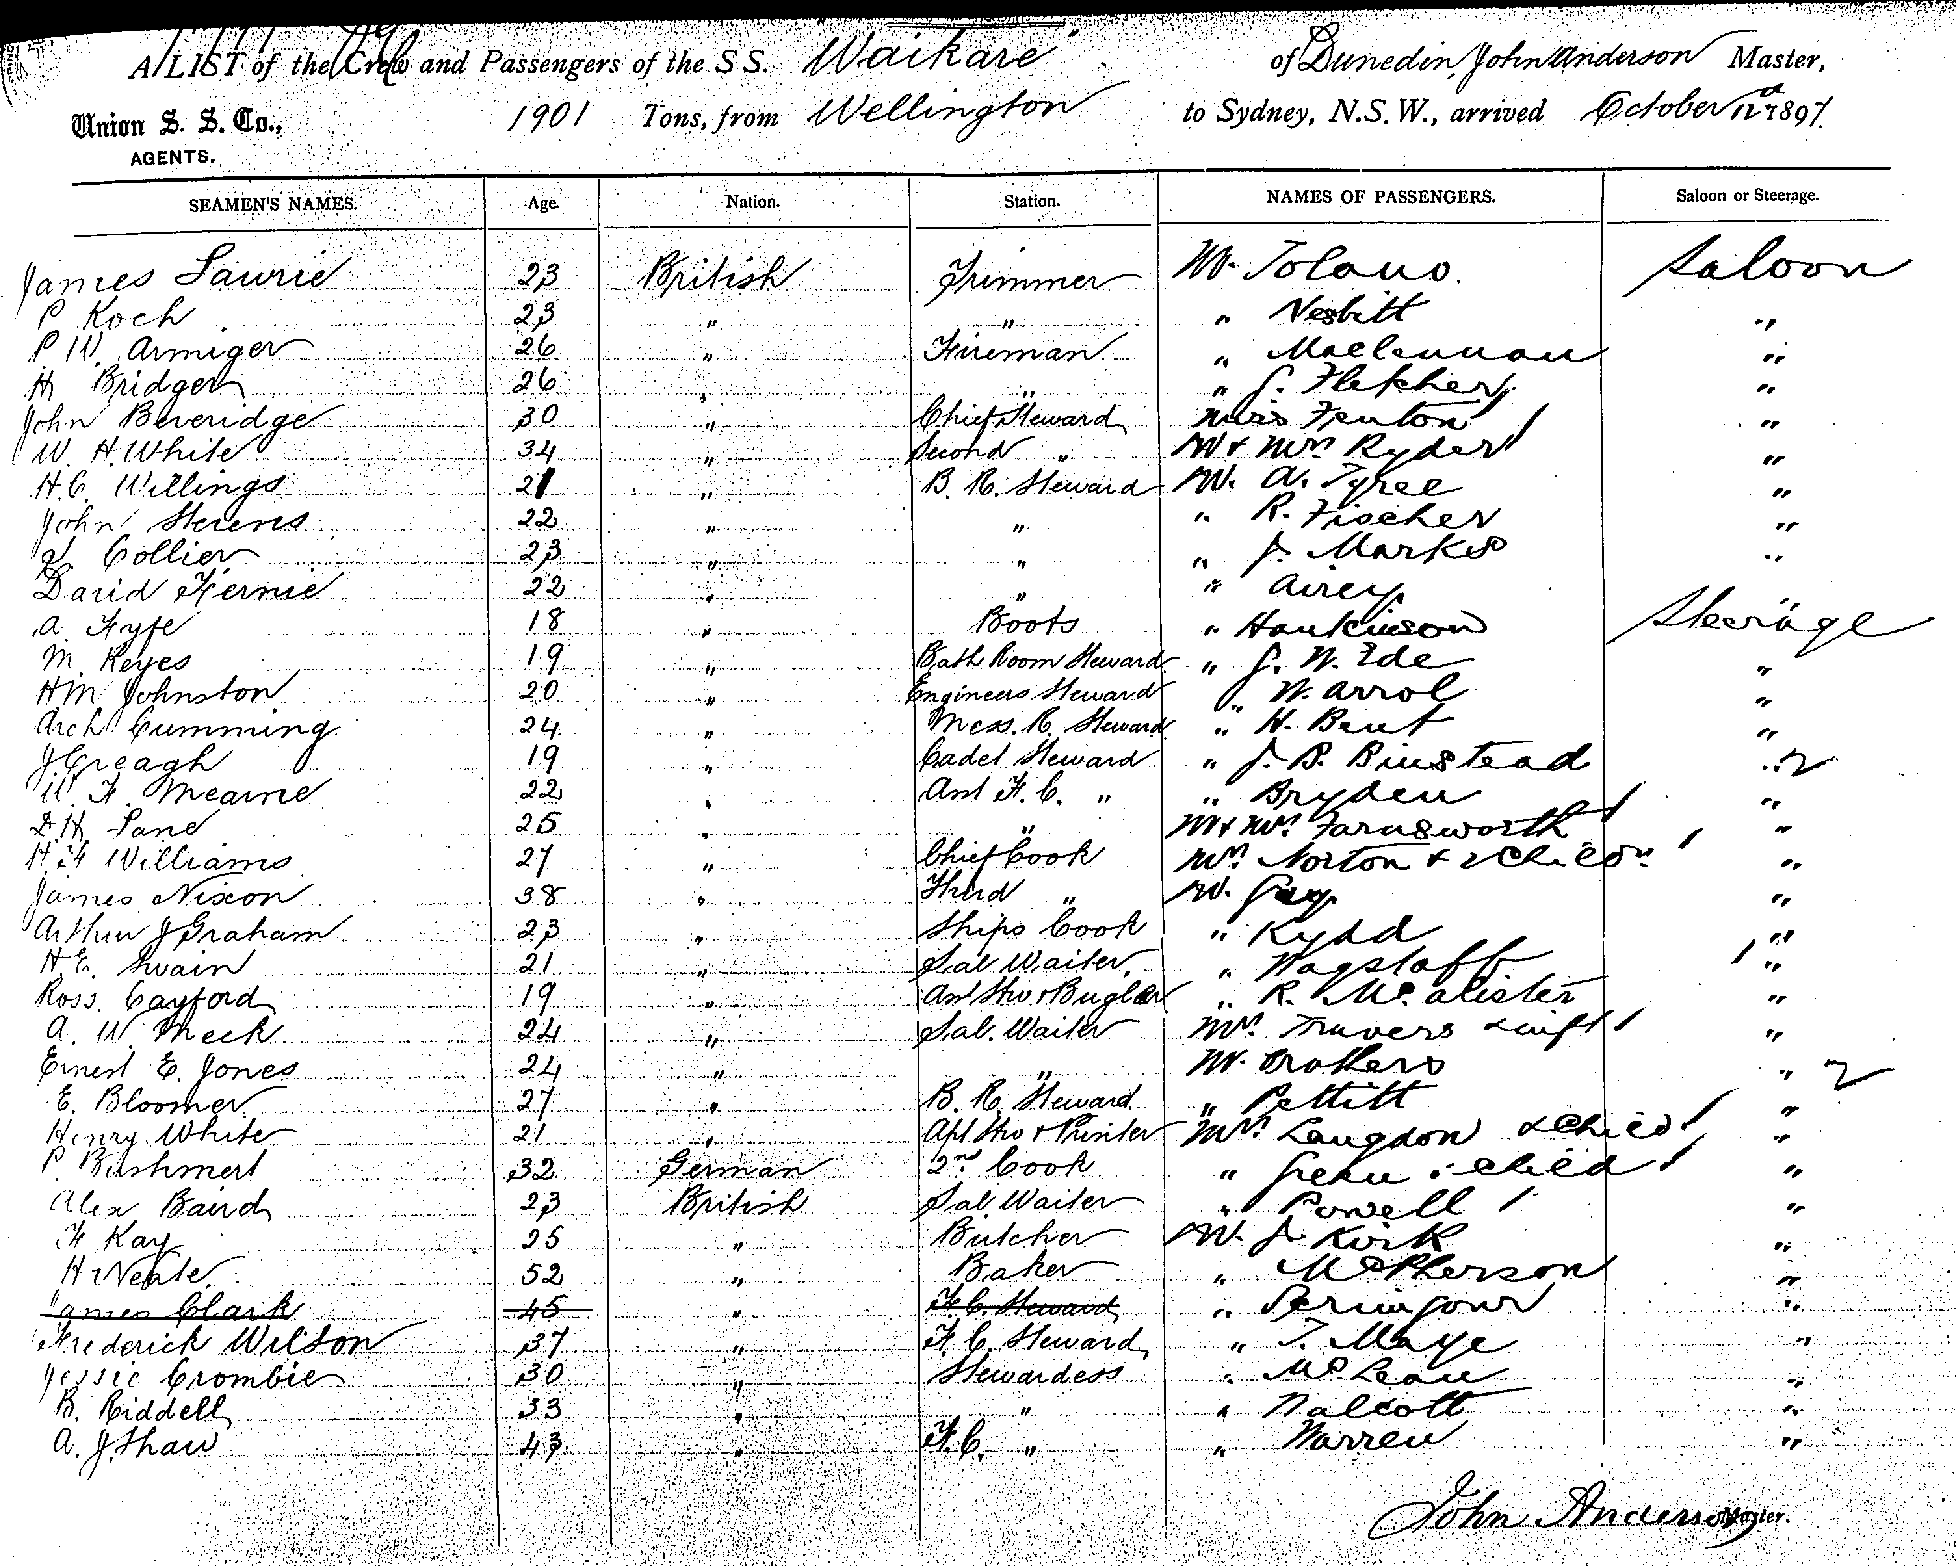 A LIST of the Crew and Passengers of the S S. Waikare of Dunedin, John Anderson Master,
Union S. S. Co., 1901 Tons, from Wellington to Sydney, N.S.W., arrived October 1897
AGENTS.
SEAMEN'S NAMES. Age. Nation. Station. NAMES OF PASSENGERS. Saloon or Steerage.
James Lawrie 23 British Trimmer Mr. Tolano. Saloon
P Koch 23 " " " Nesbitt "
P W. Armiger 26 " Fireman " Maclennan "
H Bridger 26 " " " J. Fletcher "
John Beveridge 30 " Chief Steward Miss Fenton "
W. H. White 34 " Second " Mr & Mrs Ryder "
H. C. Willings 21 " B. R. Steward Mr. A. Tyree "
John Stevens 22 " " " R. Fischer "
Collier 23 " " " J. Marks "
David Fernie 22 " " " Airey
A. Fyfe 18 " Boots " Hankinson Steerage
M. Keyes 19 " Bath Room Steward " J. W. Ede "
H M Johnston 20 " Engineers Steward " W. Arrol "
Arch Cumming 24 " Mess. R. Steward " H. Bent "
J Creagh 19 " Cadet Steward " J. B. Binstead " 2
W. F. Mearne 22 " Asst F. C. " " Bryden "
D H Lane 25 " " Mr & Mrs Farnsworth "
H F Williams 27 " Chief Cook Mrs Norton & 2 Childn "
James Nixon 38 " Third " Mr. Gay "
Arthur J Graham 23 " Ships Cook " Kydd "
H E. Swain 21 " Sal Waiter. " Wagstaff "
Ross. Cayford 19 " Asst Stw & Bugler " R. McAlister "
A. W. Meek 24 " Sal. Waiter Mrs Travers & inft "
Ernest E. Jones 24 " " Mr. Crothers " 2
E. Bloomer 27 " B. R. Steward " Pettitt "
Henry White 21 " Apt Stw & Printer Mrs Langdon & Child "
P Bushmert 32 German 2nd Cook " Green & Child "
Alex Baird 23 British Sal. Waiter " Powell "
F Kay 25 " Butcher Mr. J. Kirk "
H Neale 52 " Baker " McPherson "
James Clark 45 " F. C. Steward " Scrimgour "
Frederick Wilson 37 " F. C. Steward " T. Maye "
Jessie Crombie 30 " Stewardess " McLean "
B. Riddell 33 " " " Walcott "
A. J. Shaw 43 " F. C. " " Warren "
John Anderson Master.